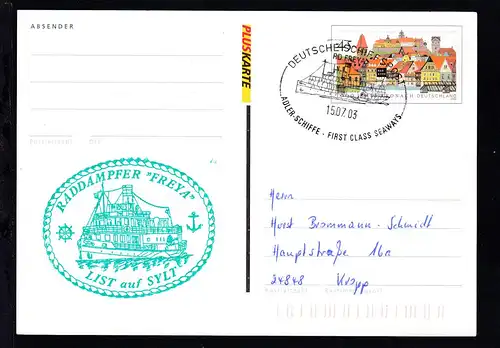 ABSENDER
PLUSKARTE
45
DEUTSCHE SCHIFFSPOST
RD FREYA
DEUTSCHLAND
15.07.03
ADLER-SCHIFFE · FIRST CLASS SEAWAYS
Postleitzahl Ort
RADDAMPFER "FREYA"
LIST auf SYLT
Herrn
Horst Brommann-Schmidt
Hauptstraße 16a
24848 Kropp
Postleitzahl Bestimmungsort